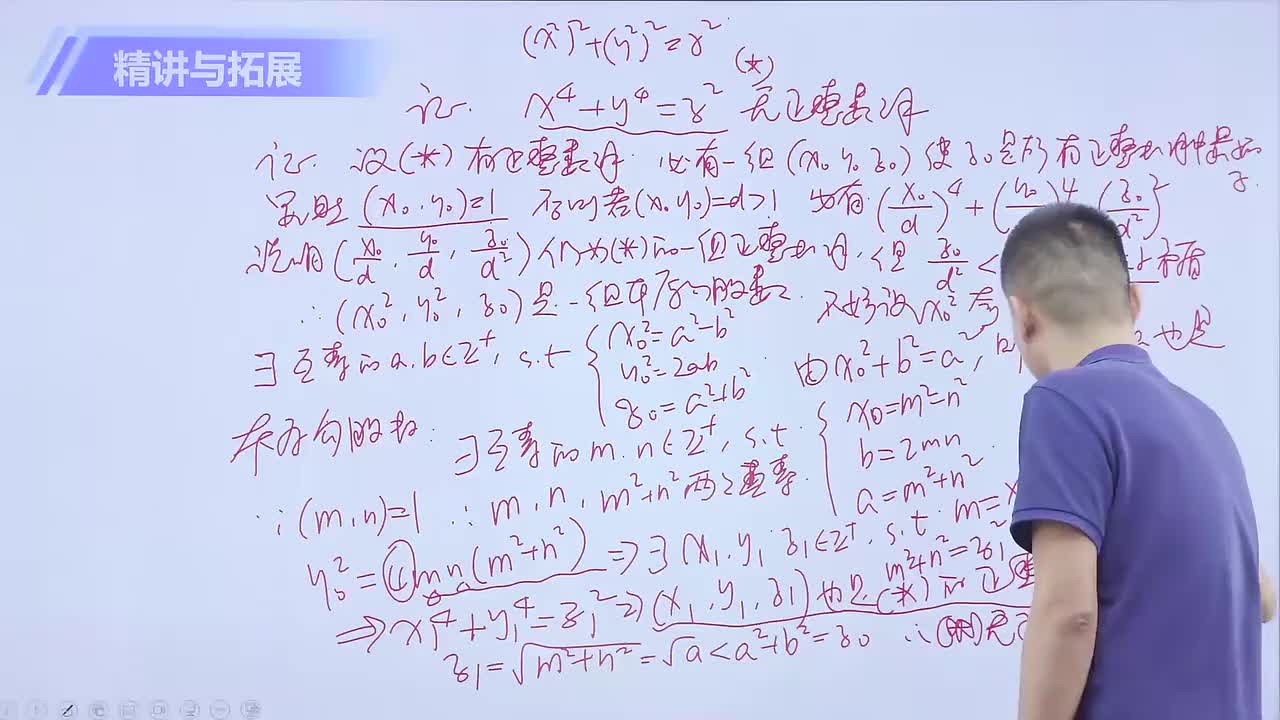 精讲与拓展
(x²)²+(y²)²=z²
证. x⁴+y⁴=z² (*) 无正整数解
证. 设(*)有正整数解. 必有一组(x₀,y₀,z₀)使z₀是所有正整数解中最小
(x₀,y₀)=1 否则若(x₀,y₀)=d>1 必有(x₀/d)⁴+(y₀/d)⁴ (z₀/d²)²
说明(x₀/d, y₀/d, z₀/d²)仍为(*)的一组正整数解, 但 z₀/d² < 矛盾
∴(x₀²,y₀²,z₀)是一组本原勾股数. 不妨设x₀²
∃互素的a,b∈Z⁺, s.t { x₀²=a²-b² y₀²=2ab z₀=a²+b² 由x₀²+b²=a², 也是
本原勾股数. ∃互素的m,n∈Z⁺, s.t. { x₀=m²-n² b=2mn a=m²+n²
∵(m,n)=1 ∴m,n,m²+n²两两互素.
y₀²=4mn(m²+n²) ⇒∃(x₁,y₁,z₁∈Z⁺, s.t. m= m²+n²=z₁²
⇒x₁⁴+y₁⁴=z₁²⇒(x₁,y₁,z₁)也是(*)的正整
z₁=√m²+n²=√a<a²+b²=z₀ ∴(*)无